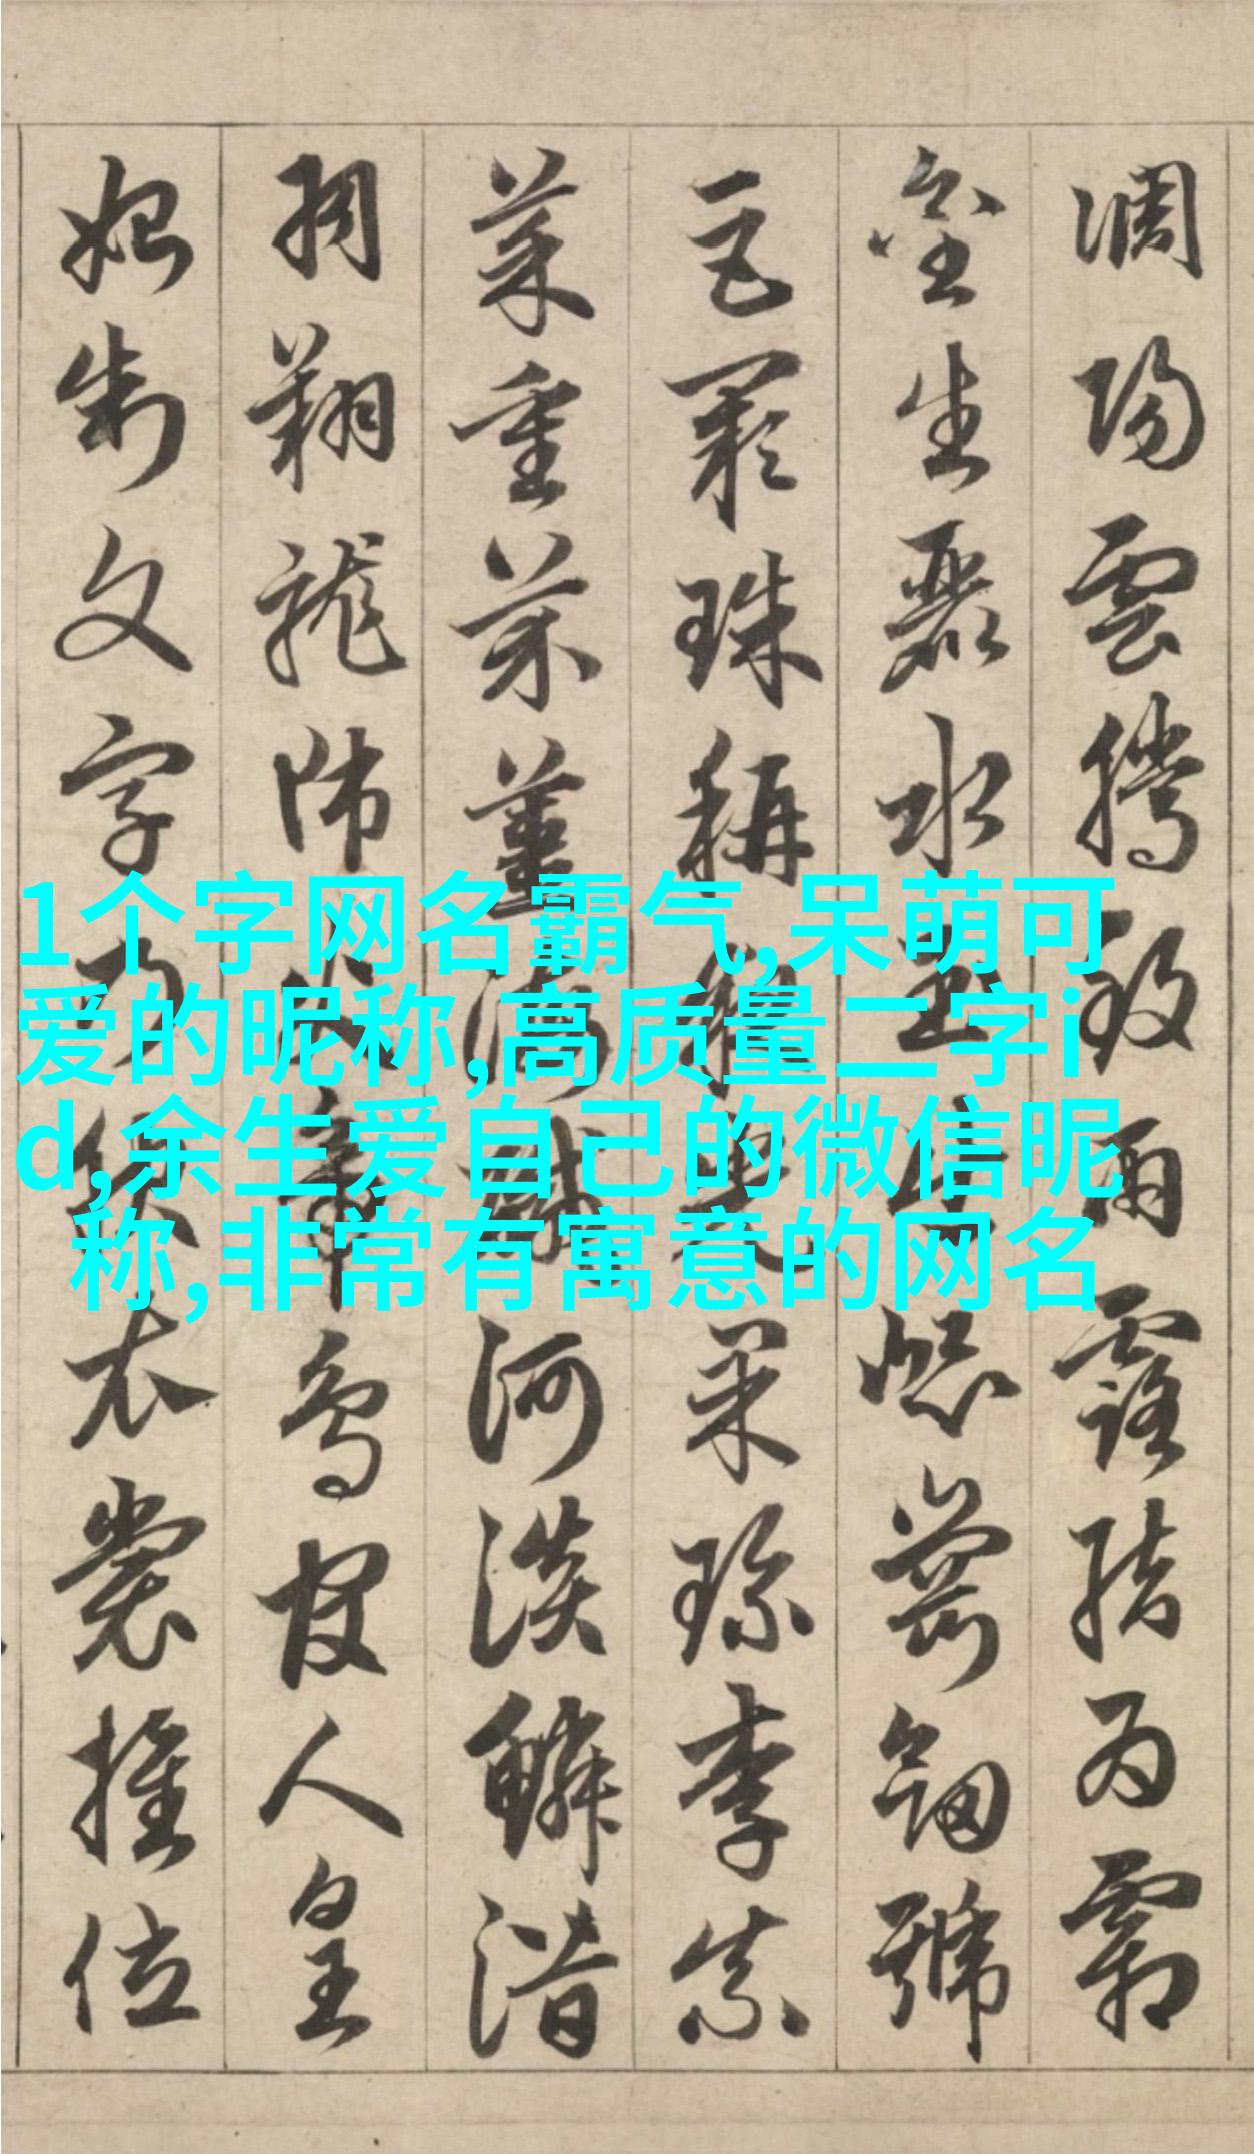 調陽雲騰致雨露結為霜
金生麗水玉出崐崗劒號
巨闕珠稱夜光果珍李柰
菜重芥薑海鹹河淡鱗潛
羽翔龍師火帝鳥官人皇
始制文字乃服衣裳推位
1个字网名霸气,呆萌可
爱的昵称,高质量二字i
d,余生爱自己的微信昵
称,非常有寓意的网名